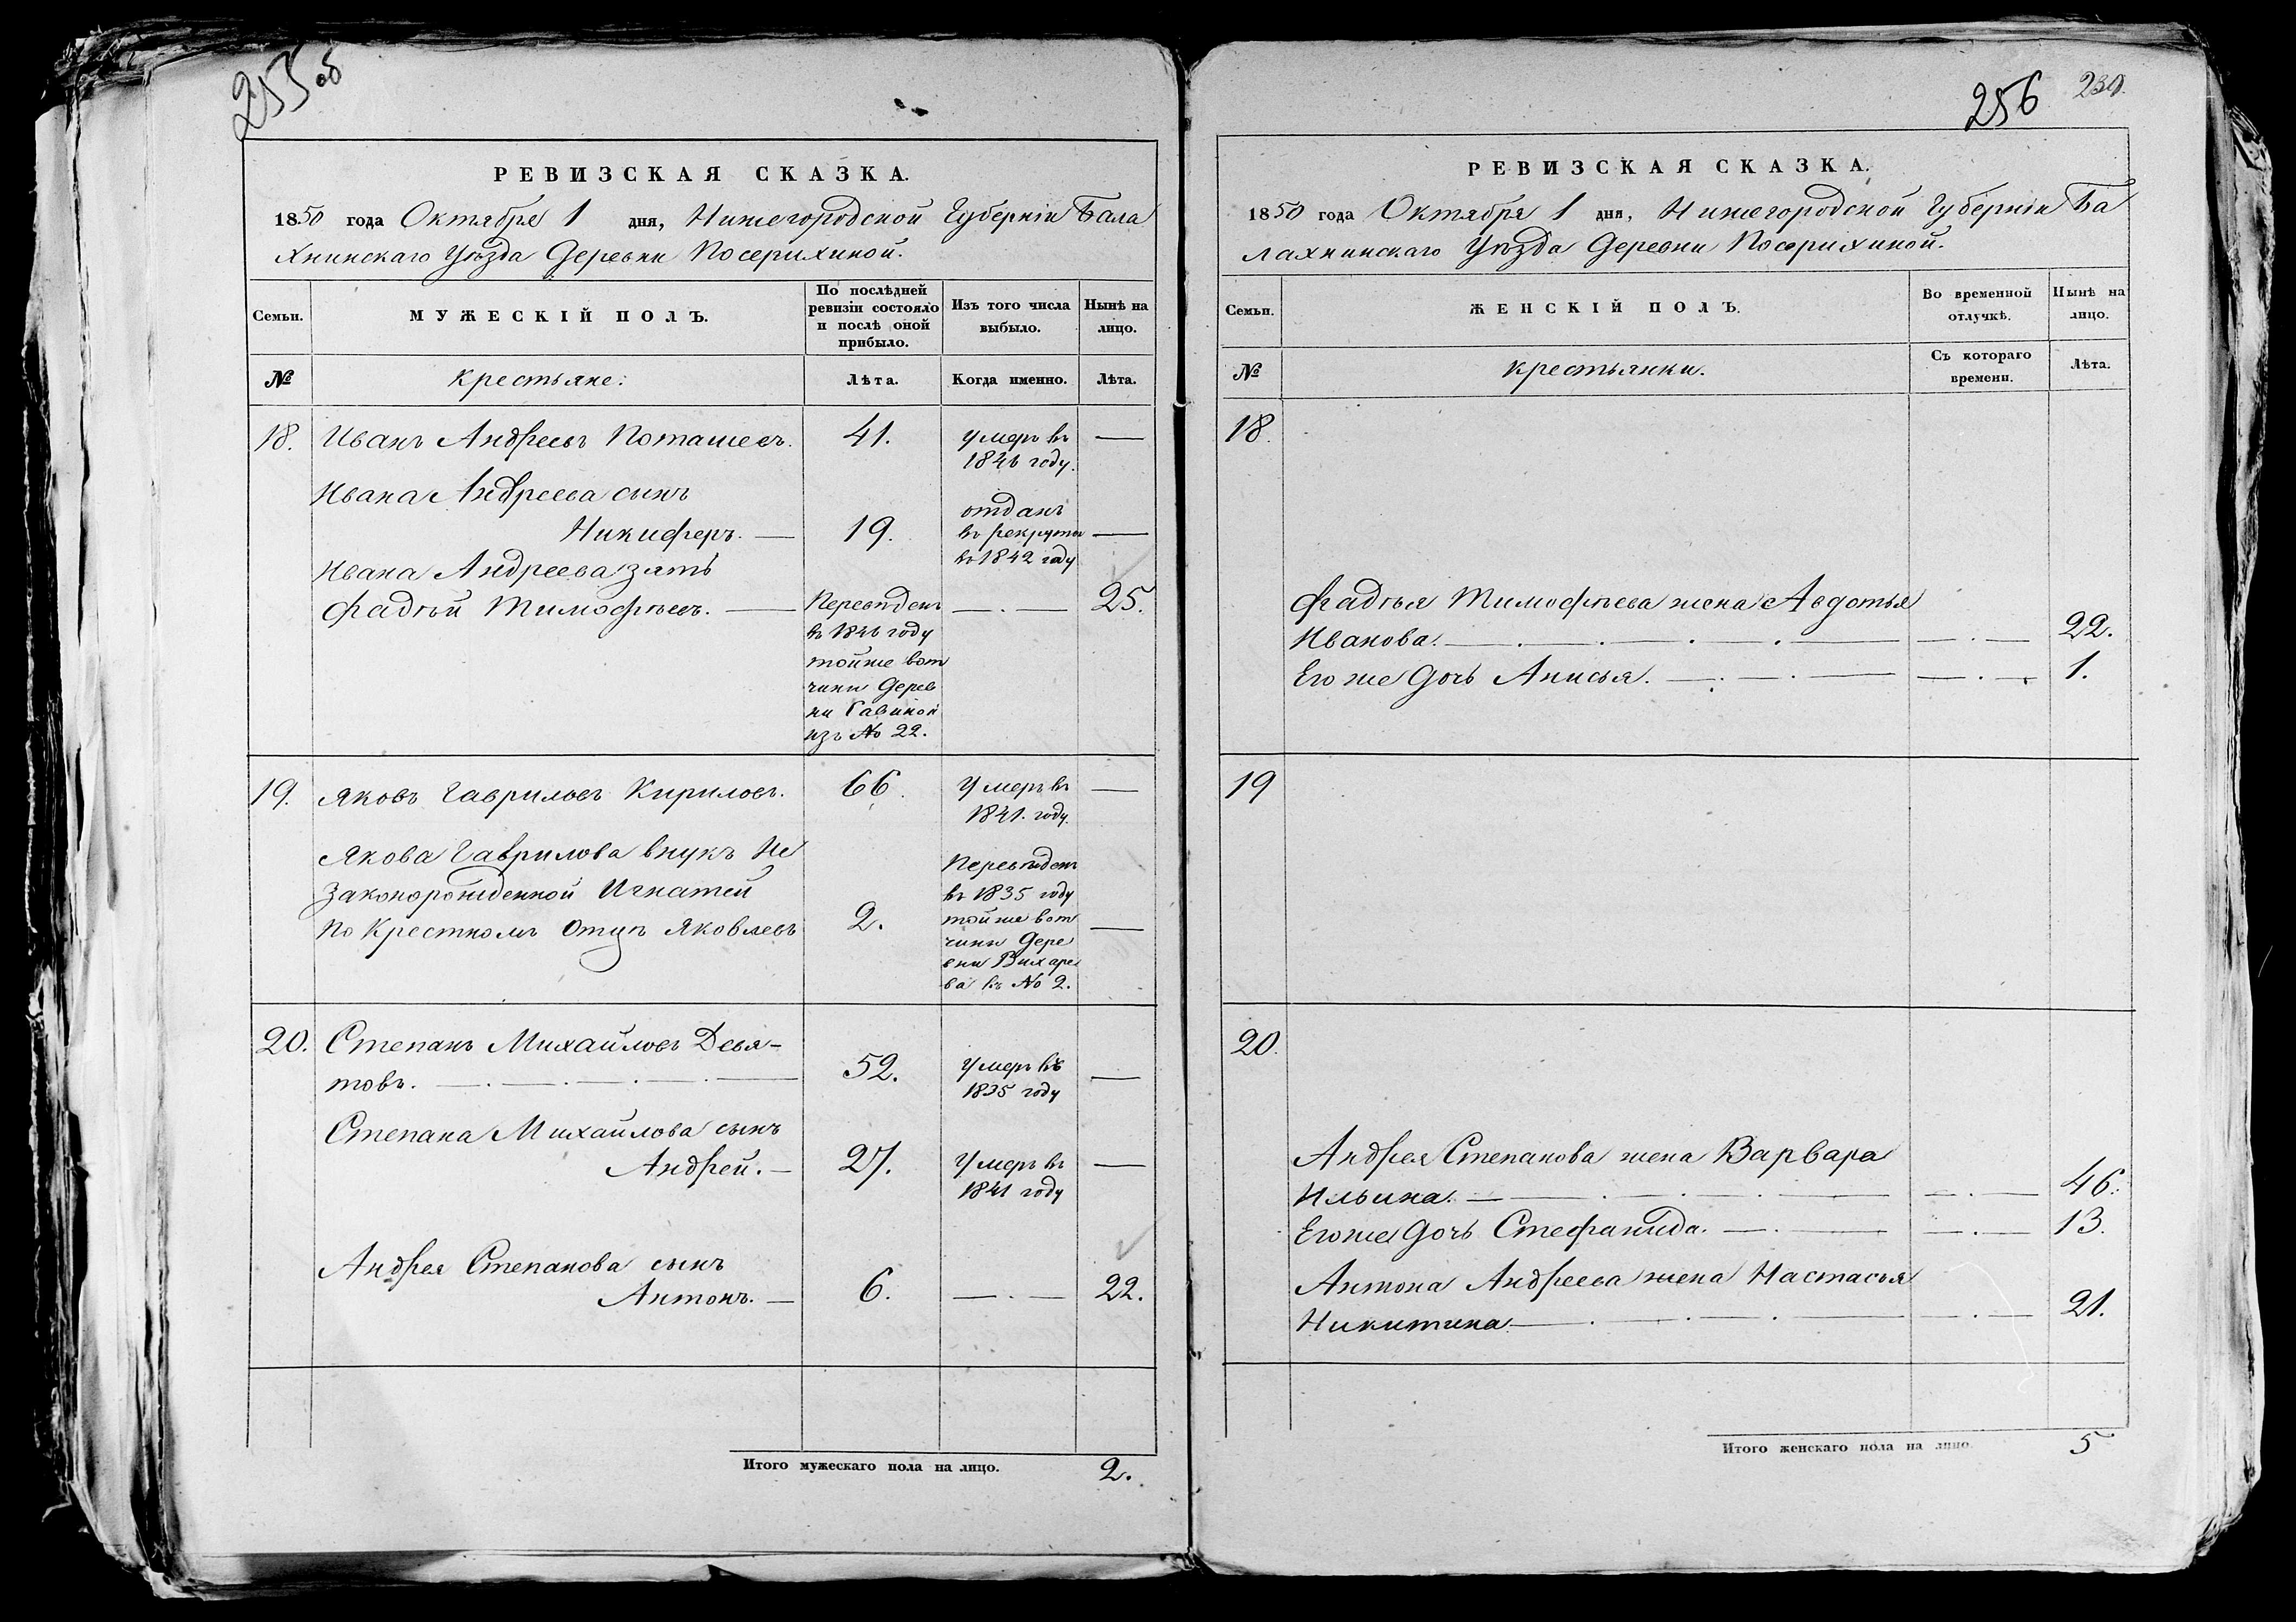 253 об
РЕВИЗСКАЯ СКАЗКА.
1850 года Октября 1 дня, Нижегородской Губерніи Бала
хнинскаго Уѣзда Деревни Посерихиной.
Семьи.
МУЖЕСКІЙ ПОЛЪ.
По послѣдней ревизіи состояло и послѣ оной прибыло.
Изъ того числа выбыло.
Нынѣ на лицо.
№
Крестьяне:
Лѣта.
Когда именно.
Лѣта.
18. Иванъ Андреевъ Поташевъ. 41. умеръ въ —
1846 году.
Ивана Андреева сынъ
Никифоръ. — 19. отданъ
въ рекруты —
въ 1842 году
Ивана Андреева зять
Фадѣй Тимофѣевъ. — Переведенъ — . — 25.
въ 1846 году
тойже вот
чины Дерев
ни
изъ № 22.
19. Яковъ Гавриловъ Кириловъ. 66. Умеръ въ —
1841. году.
Якова Гаврилова внукъ Не
законорожденной Игнатей
по Крестномъ Отцѣ Яковлевъ 2. Переведенъ
въ 1835 году
тойже вот —
чины Дере
вни Вихаре
ва къ № 2.
20. Степанъ Михайловъ Девя-
товъ. — . — . — . — . — 52. Умеръ въ —
1835 году
Степана Михайлова сынъ
Андрей. — 27. Умеръ въ —
1841 году
Андрея Степанова сынъ
Антонъ. — 6. — . — 22.
Итого мужескаго пола на лицо. 2.
256 230.
РЕВИЗСКАЯ СКАЗКА.
1850 года Октября 1 дня, Нижегородской Губерніи Ба
лахнинскаго Уѣзда Деревни Посерихиной.
Семьи.
ЖЕНСКІЙ ПОЛЪ.
Во временной отлучкѣ.
Нынѣ на лицо.
№
Крестьянки.
Съ котораго времени.
Лѣта.
18.
Фадѣя Тимофѣева жена Авдотья
Иванова. — . — . — . — — . — 22.
Его же Дочь Анисья. — . — . — — . — . 1.
19
20.
Андрея Степанова жена Варвара
Ильина. — . — . — . — — . — 46.
Егоже Дочь Стефанида. — . — — . — 13.
Антона Андреева жена Настасья
Никитина — . — . — . — — . — 21.
Итого женскаго пола на лицо. 5